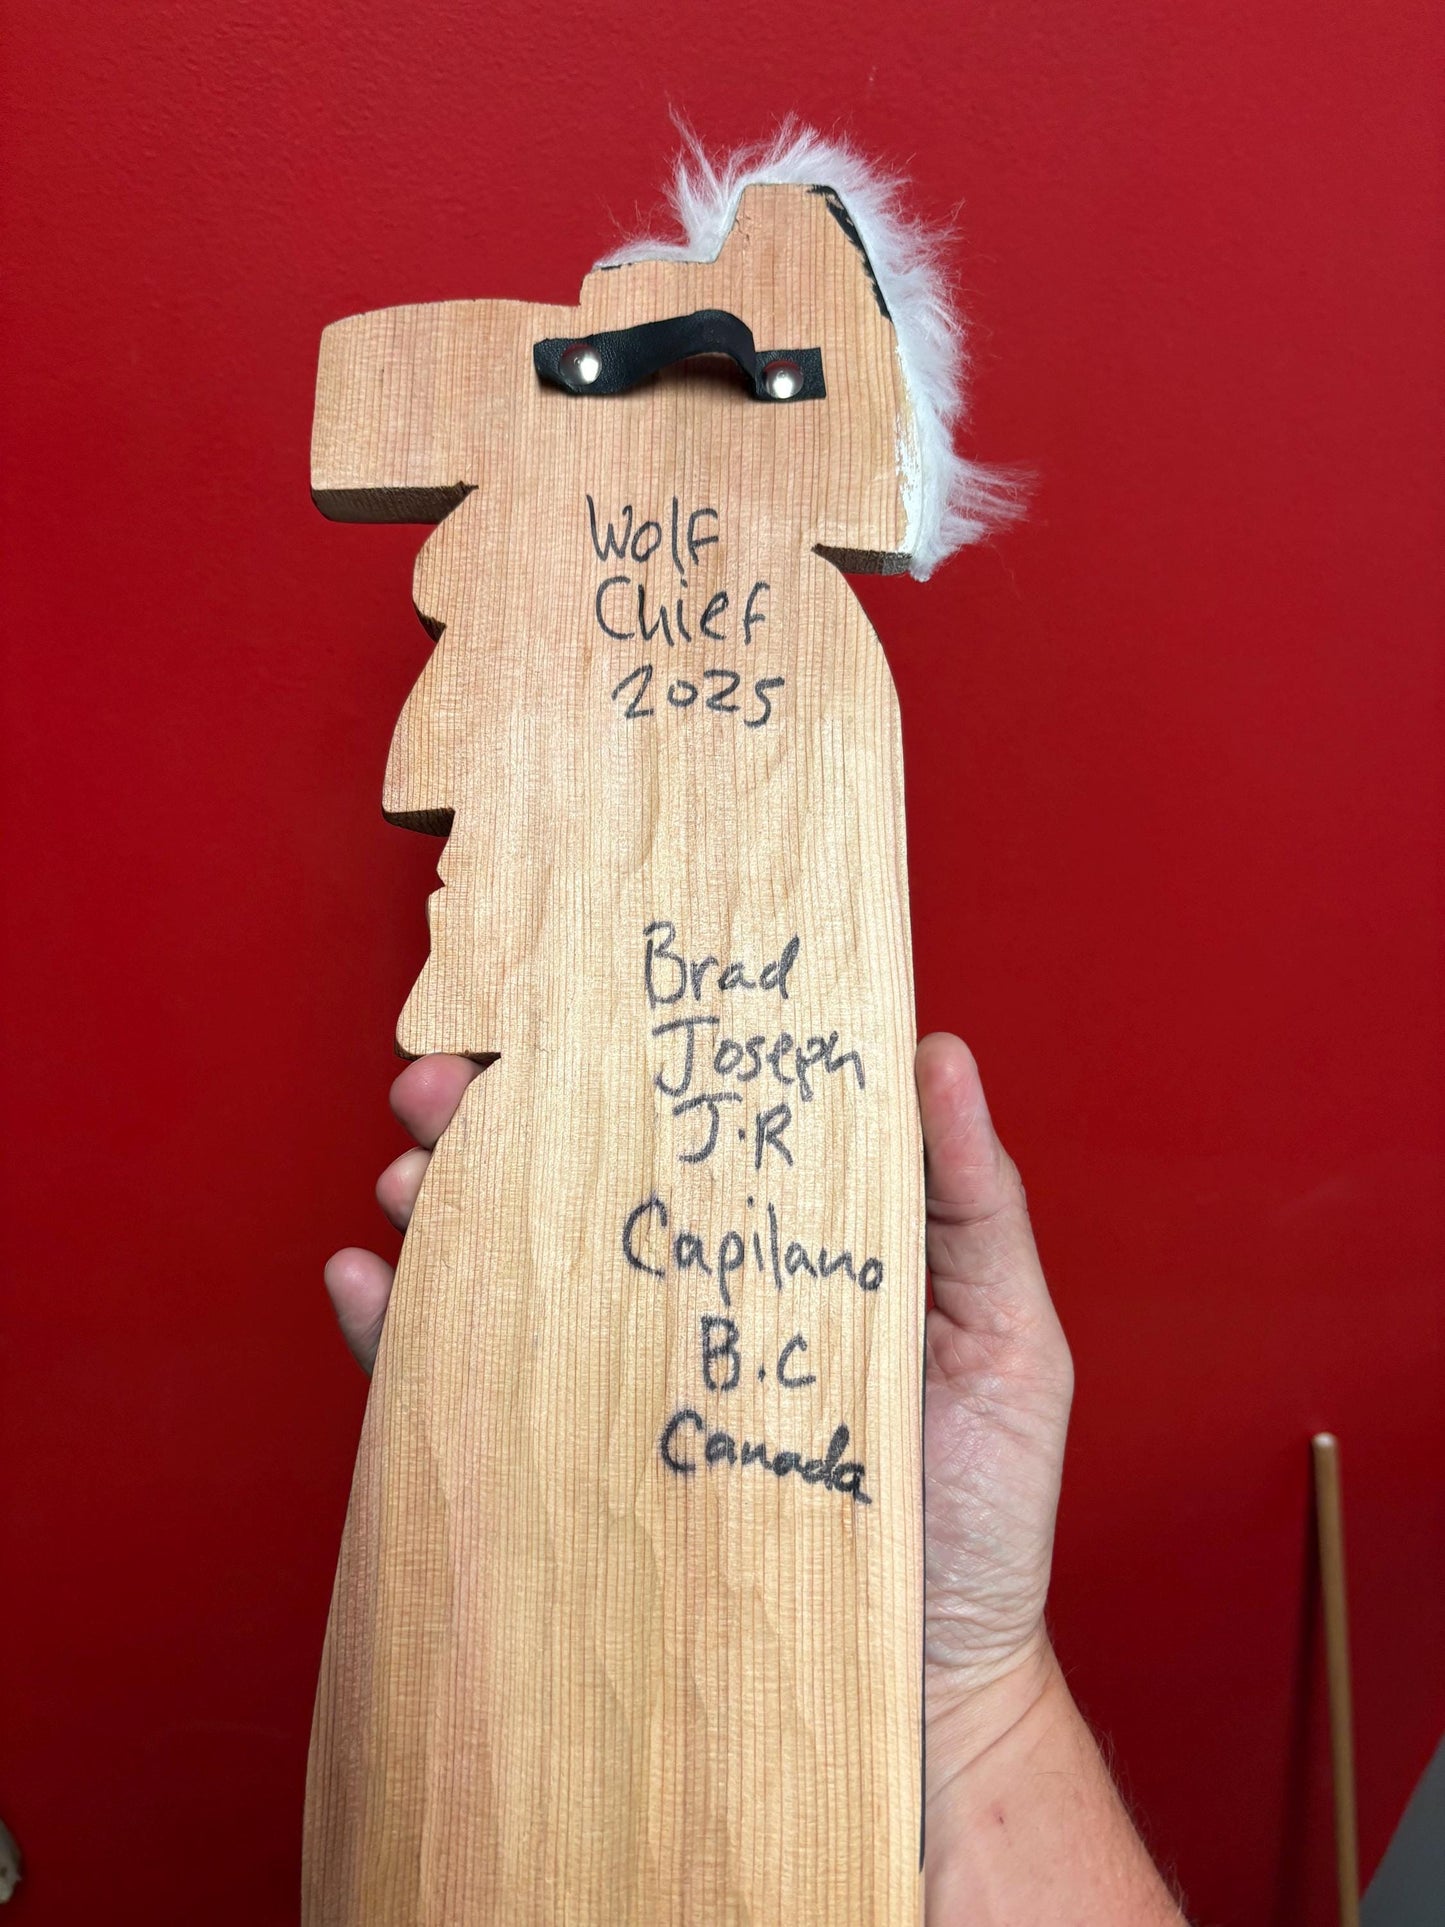 Wolf
Chief
2025
Brad
Joseph
J.R
Capilano
B.C
Canada